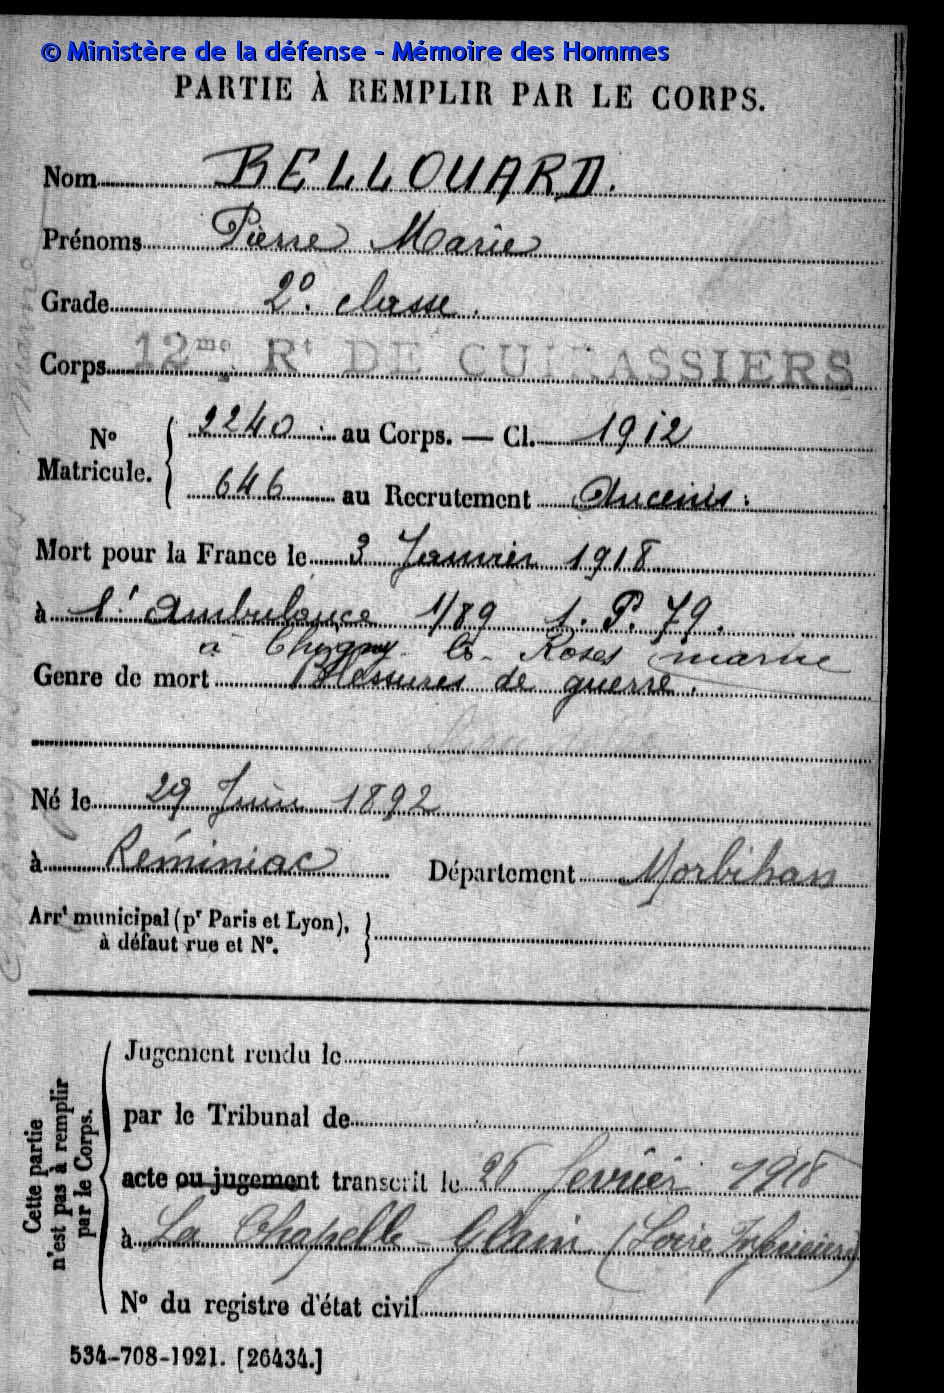 © Ministère de la défense - Mémoire des Hommes
PARTIE À REMPLIR PAR LE CORPS.
Nom BELLOUARD.
Prénoms Pierre Marie
Grade 2e. classe.
Corps 12me Rt DE CUIRASSIERS
No Matricule. { 2240 au Corps. — Cl. 1912
646 au Recrutement Ancenis.
Mort pour la France le 3 Janvier 1918
à l'Ambulance 1/89 1. P. 79.
à Chigny-les-Roses marne
Genre de mort Blessures de guerre.
Né le 29 Juin 1892
à Réminiac Département Morbihan
Arrt municipal (pr Paris et Lyon),
à défaut rue et No. }
Cette partie
n'est pas à remplir
par le Corps.
Jugement rendu le
par le Tribunal de
acte ou jugement transcrit le 26 février 1918
à La Chapelle-Glain (Loire Inférieure)
No du registre d'état civil
534-708-1921. [26434.]